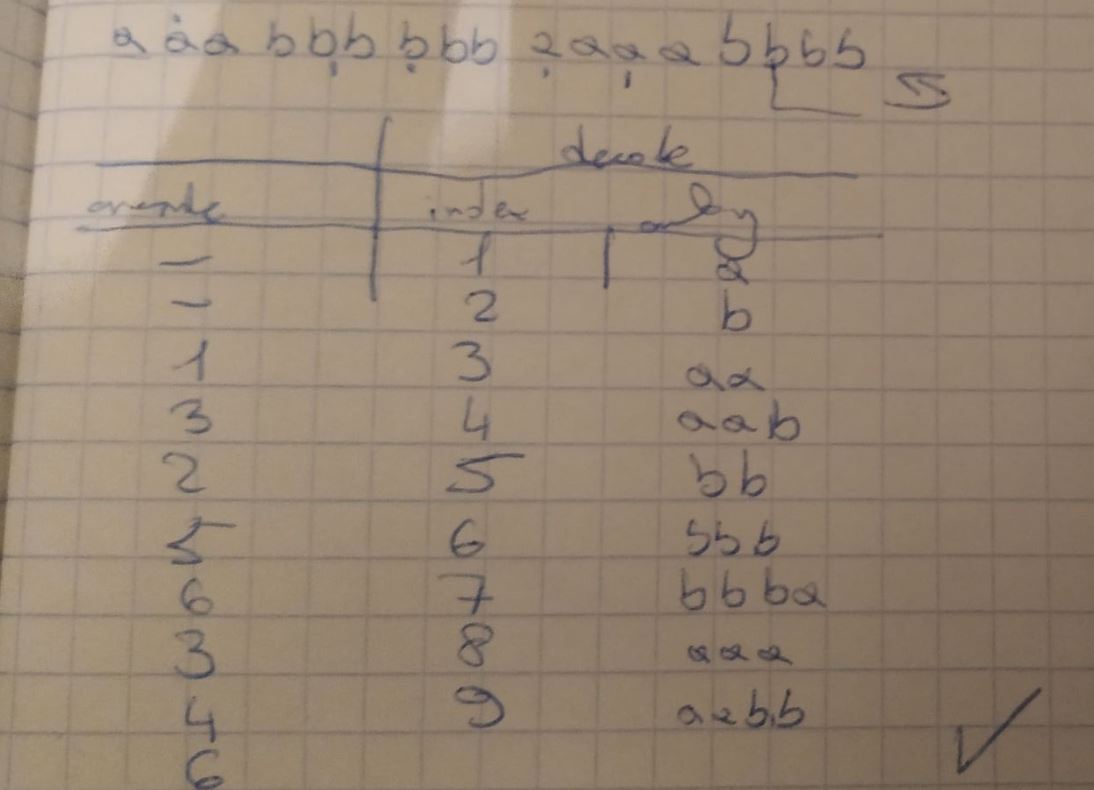 a a a b b b b b b a a a a b b b b 5
decode
encode index
- 1 a
- 2 b
1 3 aa
3 4 aab
2 5 bb
5 6 bbb
6 7 bbba
3 8 aaa
4 9 aabb
6